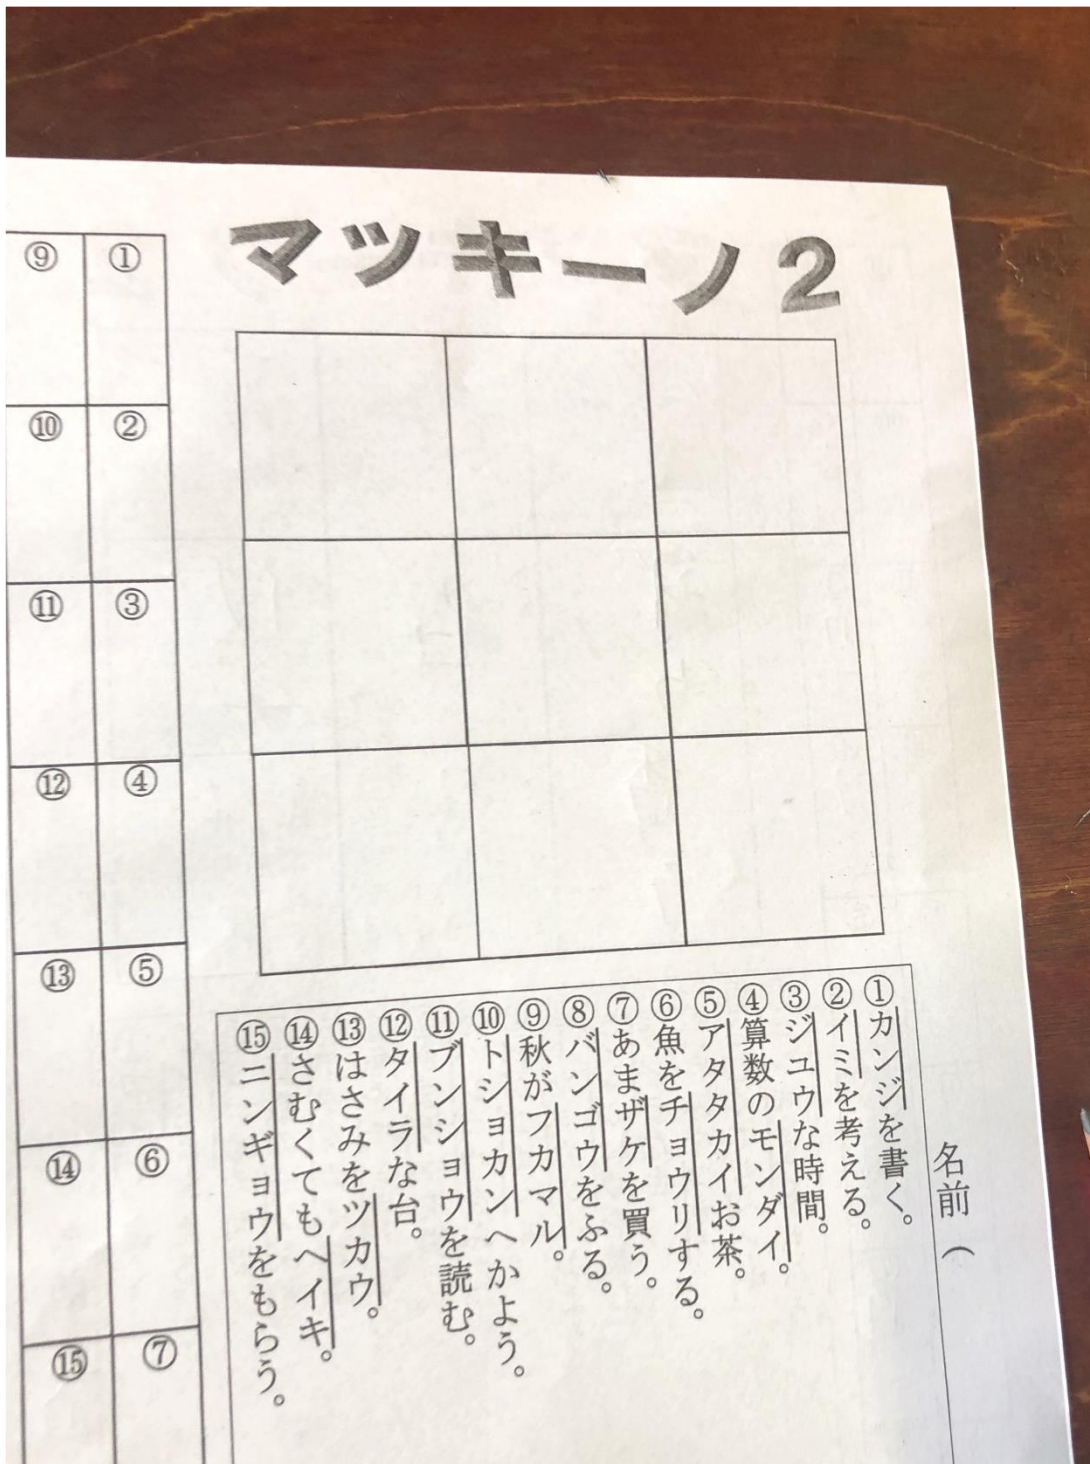 マツキーノ2
名前（
①カンジを書く。
②イミを考える。
③ジユウな時間。
④算数のモンダイ。
⑤アタタカイお茶。
⑥魚をチョウリする。
⑦あまザケを買う。
⑧バンゴウをふる。
⑨秋がフカマル。
⑩トショカンへかよう。
⑪ブンショウを読む。
⑫タイラな台。
⑬はさみをツカウ。
⑭さむくてもヘイキ。
⑮ニンギョウをもらう。
①
②
③
④
⑤
⑥
⑦
⑨
⑩
⑪
⑫
⑬
⑭
⑮